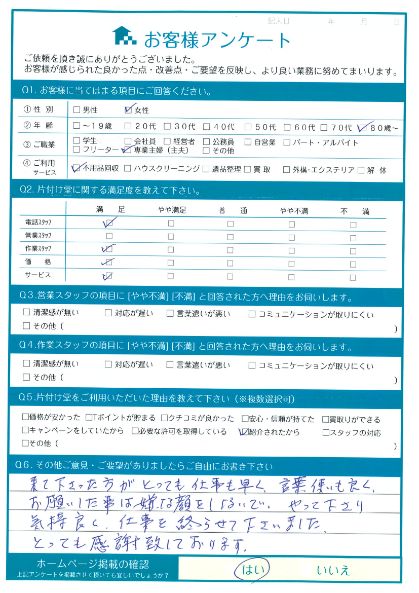 記入日 年 月 日
お客様アンケート
ご依頼を頂き誠にありがとうございました。
お客様が感じられた良かった点・改善点・ご要望を反映し、より良い業務に努めてまいります。
Q1. お客様に当てはまる項目にご回答ください。
① 性 別 □男性 ☑女性
② 年 齢 □~19歳 □20代 □30代 □40代 □50代 □60代 □70代 ☑80歳~
③ ご職業 □学生 □会社員 □経営者 □公務員 □自営業 □パート・アルバイト
□フリーター ☑専業主婦(主夫) □その他
④ ご利用サービス ☑不用品回収 □ハウスクリーニング □遺品整理 □買取 □外構・エクステリア □解体
Q2. 片付け堂に関する満足度を教えて下さい。
満 足 やや満足 普 通 やや不満 不 満
電話スタッフ ☑ □ □ □ □
営業スタッフ □ □ □ □ □
作業スタッフ ☑ □ □ □ □
価 格 ☑ □ □ □ □
サービス ☑ □ □ □ □
Q3. 営業スタッフの項目に [やや不満] [不満] と回答された方へ理由をお伺いします。
□清潔感が無い □対応が遅い □言葉遣いが悪い □コミュニケーションが取りにくい
□その他 ( )
Q4. 作業スタッフの項目に [やや不満] [不満] と回答された方へ理由をお伺いします。
□清潔感が無い □対応が遅い □言葉遣いが悪い □コミュニケーションが取りにくい
□その他 ( )
Q5. 片付け堂をご利用いただいた理由を教えて下さい(※複数選択可)
□価格が安かった □Tポイントが貯まる □クチコミが良かった □安心・信頼が持てた □買取りができる
□キャンペーンをしていたから □必要な許可を取得している ☑紹介されたから □スタッフの対応
□その他 ( )
Q6. その他ご意見・ご要望がありましたらご自由にお書き下さい
来て下さった方がとっても仕事も早く、言葉使いも良く、
お願いした事は嫌な顔をしないで、やって下さり
気持良く、仕事を終らせて下さいました。
とっても感謝致しております。
ホームページ掲載の確認
上記アンケートを掲載させて頂いても宜しいでしょうか?
はい いいえ